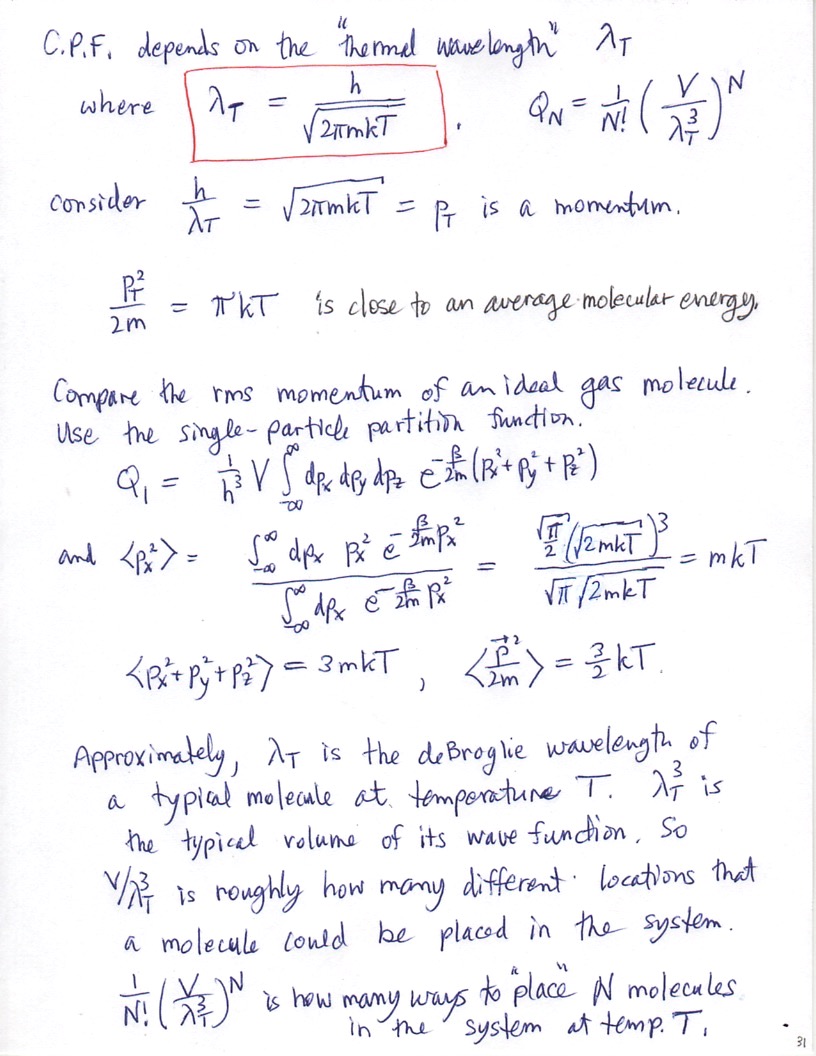 C.P.F. depends on the "thermal wavelength" λ_T
where λ_T = h / √(2πmkT) . Q_N = 1/N! (V/λ_T^3)^N
consider h/λ_T = √(2πmkT) = p_T is a momentum.
p_T^2/2m = πkT is close to an average molecular energy.
Compare the rms momentum of an ideal gas molecule.
Use the single-particle partition function.
Q_1 = 1/h^3 V ∫_{-∞}^{∞} dp_x dp_y dp_z e^{-β/2m (p_x^2+p_y^2+p_z^2)}
and <p_x^2> = ∫_{-∞}^{∞} dp_x p_x^2 e^{-β/2m p_x^2} / ∫_{-∞}^{∞} dp_x e^{-β/2m p_x^2} = √π/2 (√2mkT)^3 / √π √2mkT = mkT
<p_x^2+p_y^2+p_z^2> = 3mkT , <p⃗^2/2m> = 3/2 kT.
Approximately, λ_T is the deBroglie wavelength of
a typical molecule at temperature T. λ_T^3 is
the typical volume of its wave function. So
V/λ_T^3 is roughly how many different locations that
a molecule could be placed in the system.
1/N! (V/λ_T^3)^N is how many ways to "place" N molecules
in the system at temp. T.
31